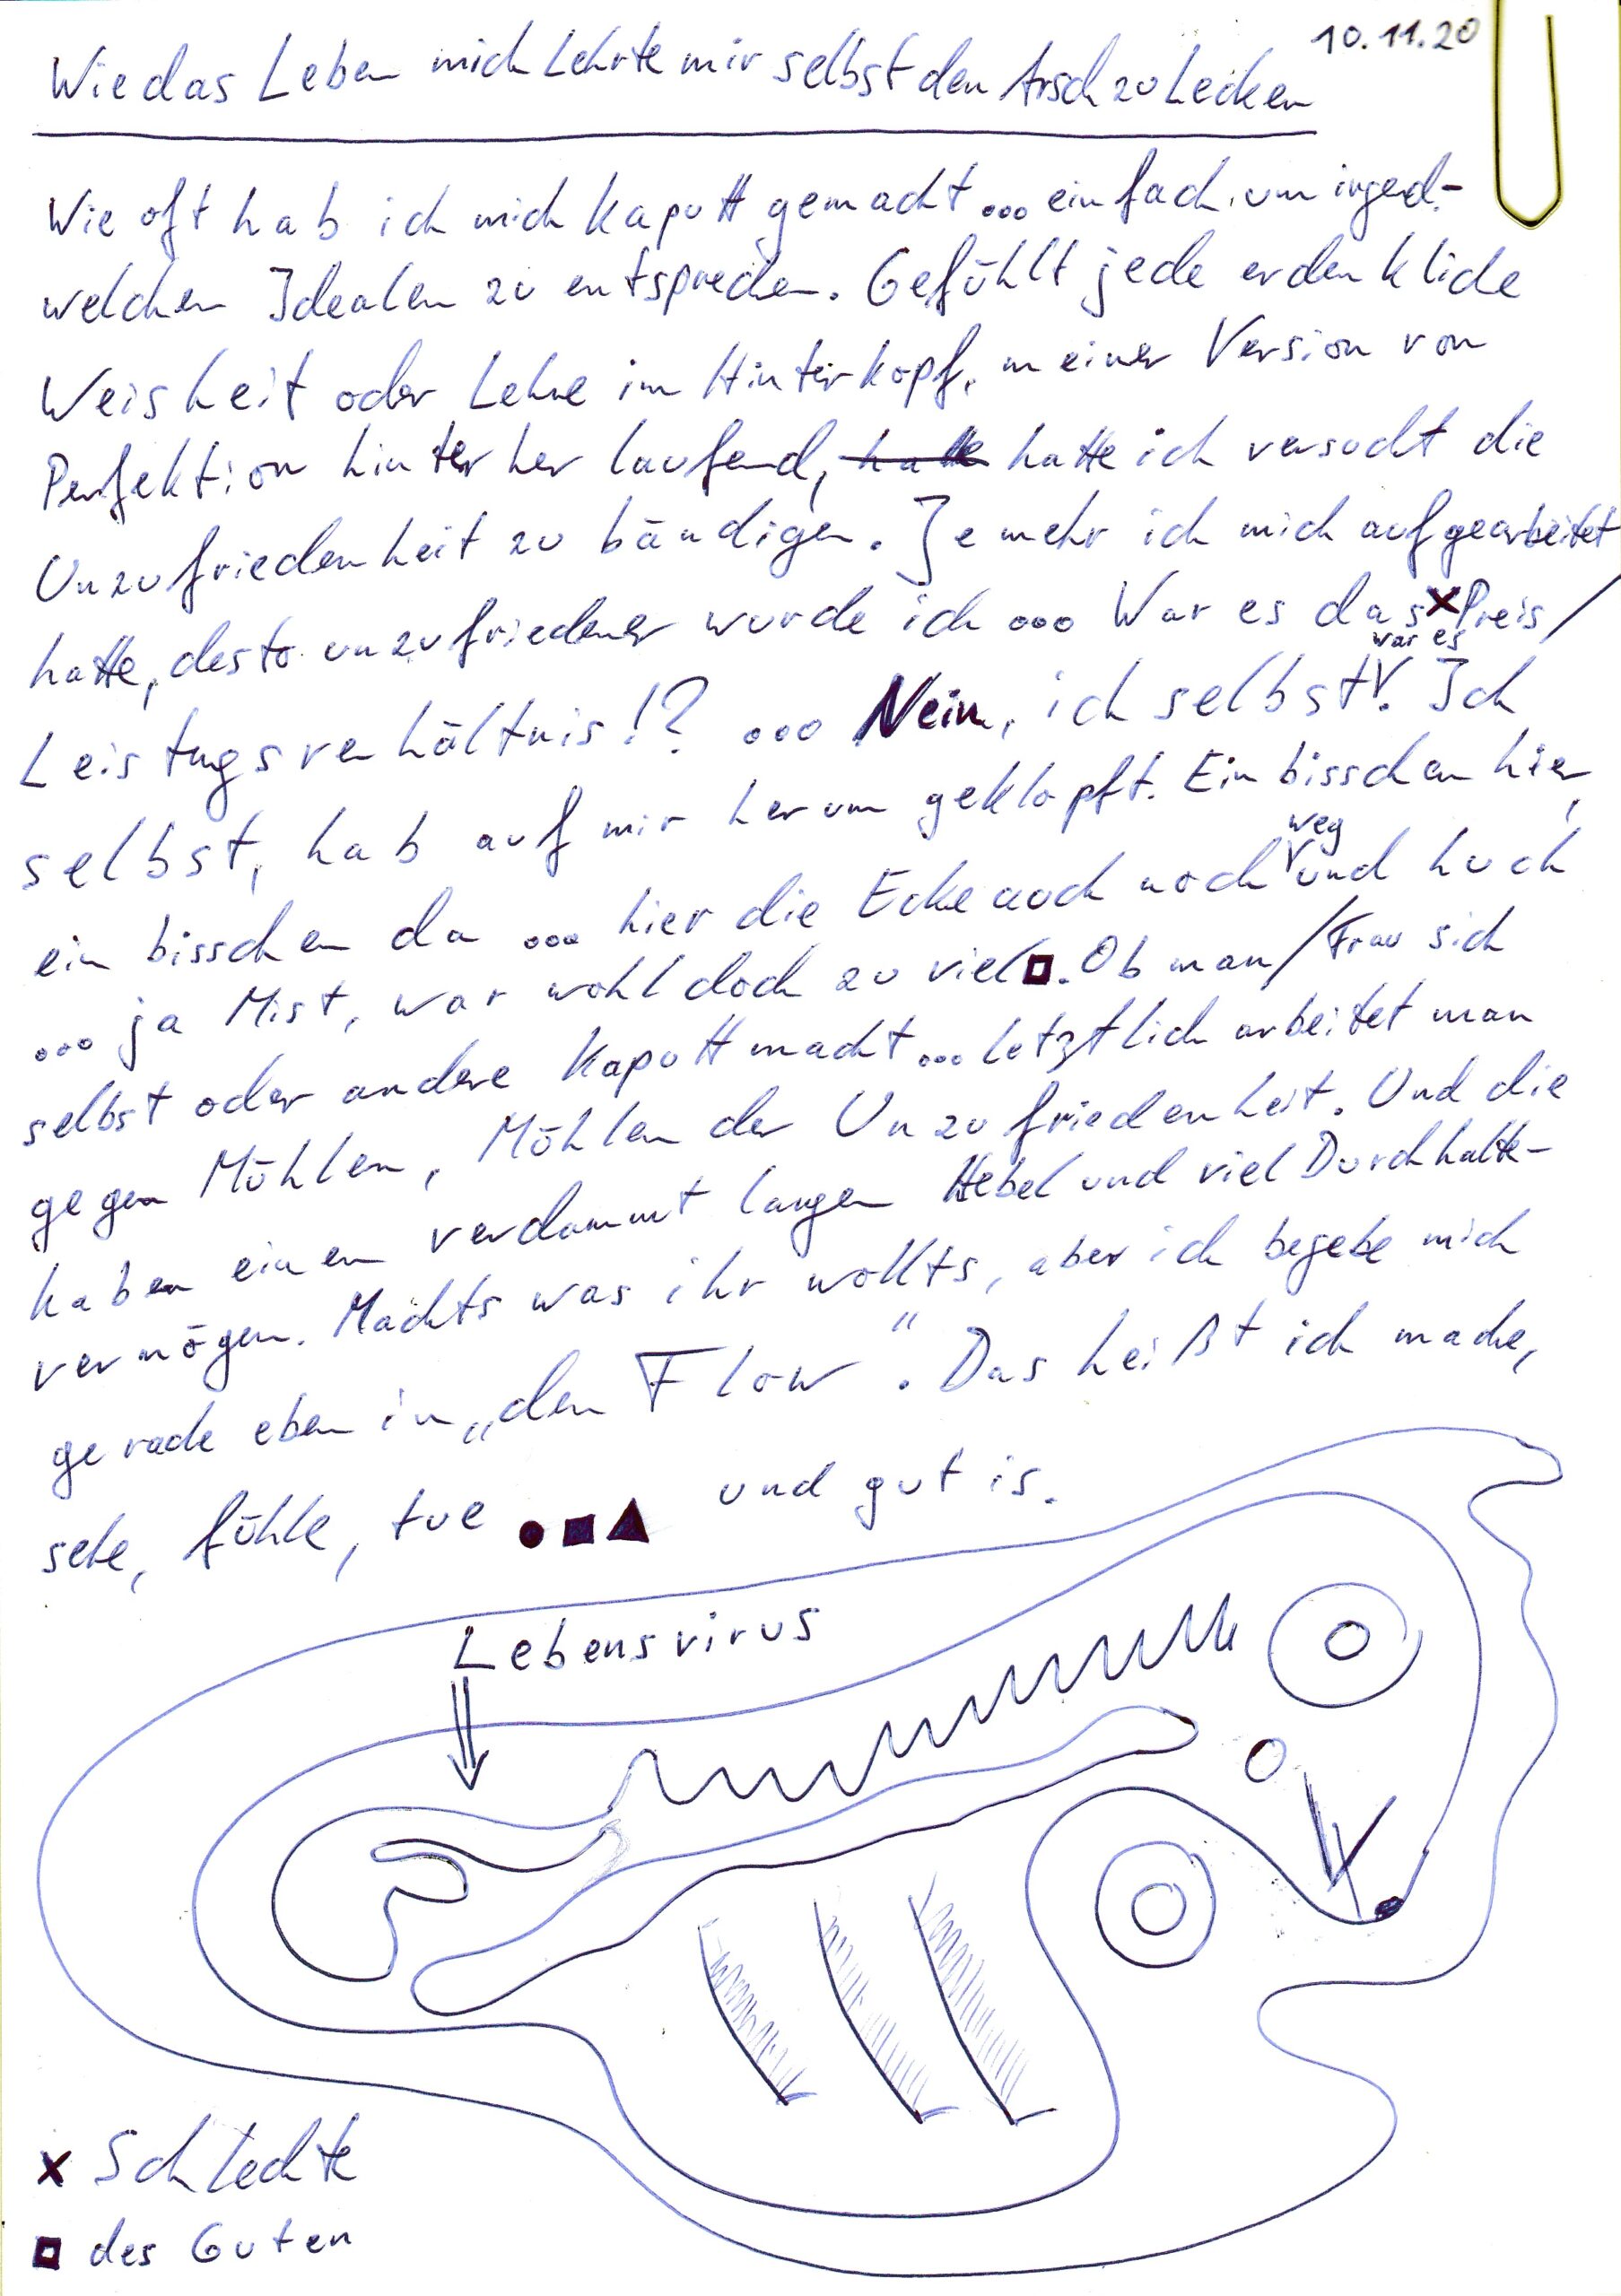 10.11.20
Wie das Leben mich lehrte mir selbst den Arsch zu lecken
Wie oft hab ich mich kaputt gemacht ... einfach um irgend-
welchen Idealen zu entsprechen. Gefühlt jede erdenkliche
Weisheit oder Lehre im Hinterkopf, meiner Version von
Perfektion hinterher laufend, hatte hatte ich versucht die
Unzufriedenheit zu bändigen. Je mehr ich mich aufgearbeitet
hatte, desto unzufriedener wurde ich ... War es das x Preis/
war es
Leistungsverhältnis!? ... Nein, ich selbst. Ich
selbst, hab auf mir herum geklopft. Ein bisschen hier,
weg
ein bisschen da ... hier die Ecke auch noch und huch
... ja Mist, war wohl doch zu viel □. Ob man/Frau sich
selbst oder andere kaputt macht ... letztlich arbeitet man
gegen Mühlen, Mühlen der Unzufriedenheit. Und die
haben einen verdammt langen Hebel und viel Durchhalte-
vermögen. Machts was ihr wollts, aber ich begebe mich
gerade eben in „den Flow“. Das heißt ich mache,
sehe, fühle, tue ●■▲ und gut is.
Lebensvirus
x Schlechte
□ des Guten